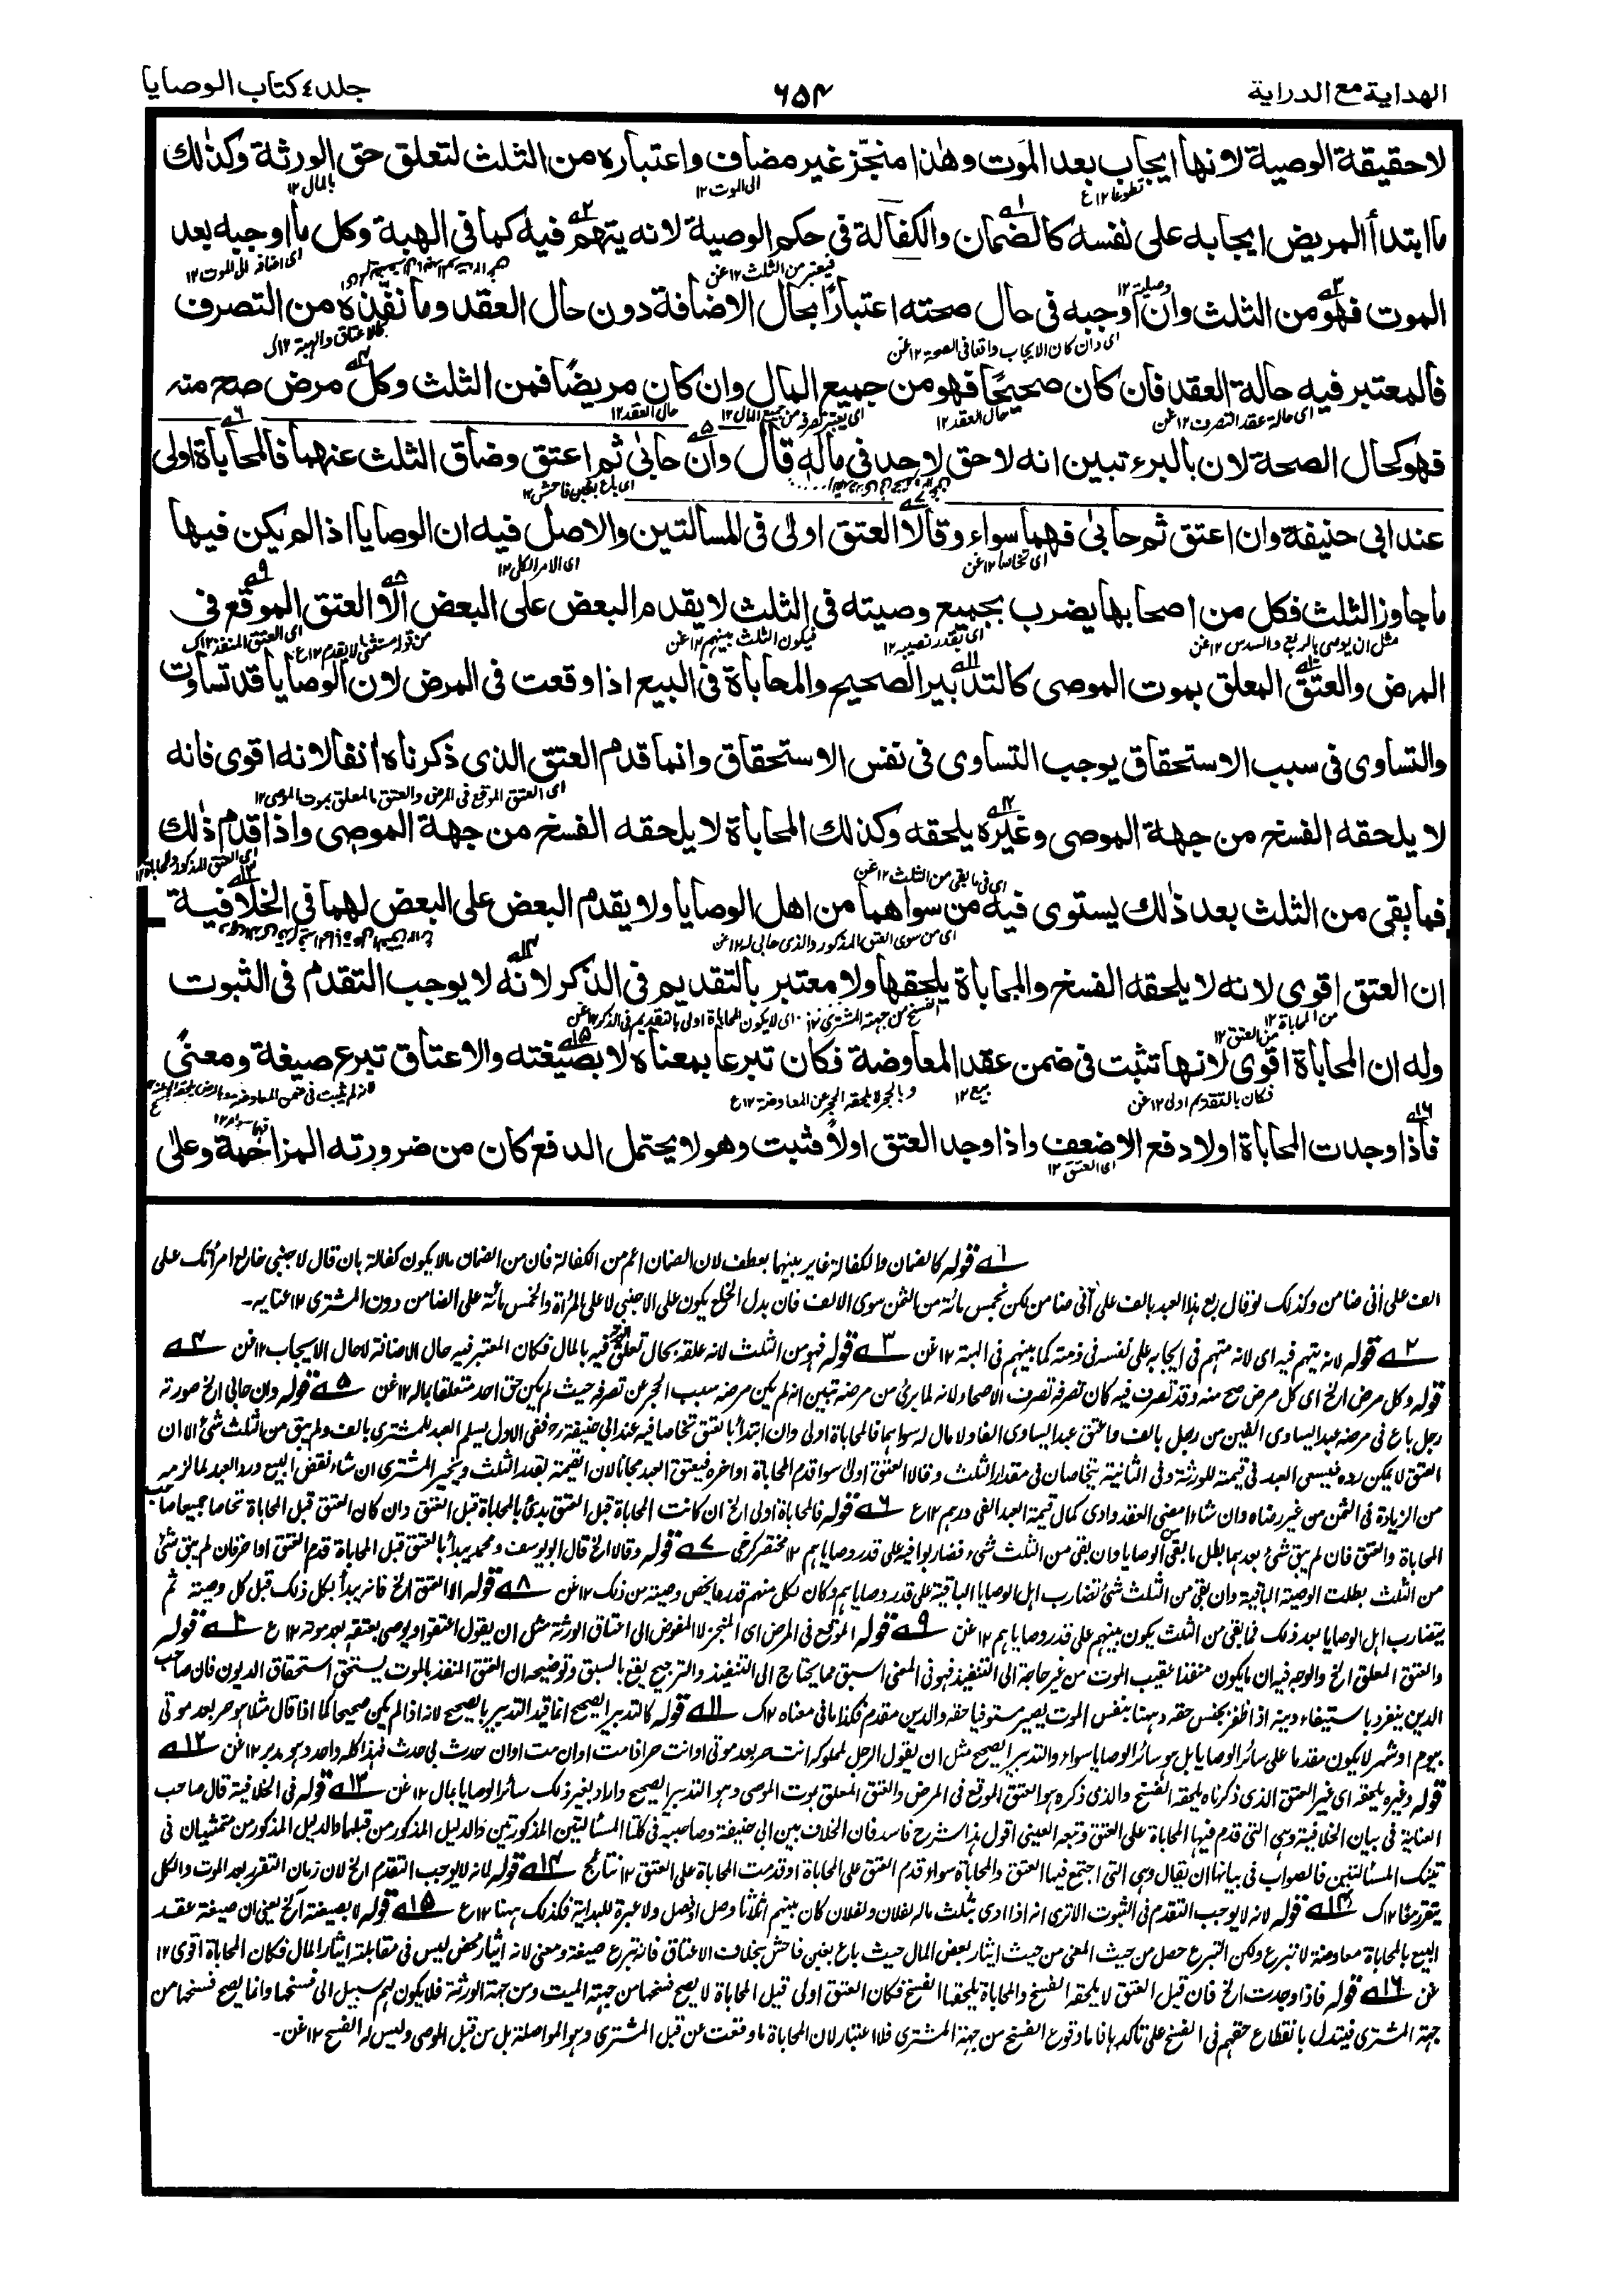 الهداية مع الدراية
۶۵۴
جلد ٤ كتاب الوصايا
لا حقيقة الوصية لانها ايجاب بعد الموت وهذا منجّز غير مضاف واعتباره من الثلث لتعلق حق الورثة وكذلك
تطوعا ١٢ ع
الى الموت ١٢
بالمال ١٢
ما ابتدأ المريض ايجابه على نفسه كالضمان والكفالة فى حكم الوصية لانه يتهم فيه كما فى الهبة وكل ما اوجبه بعد
فيعتبر من الثلث ١٢ عن
اى اضافه الى الموت ١٢
الموت فهو من الثلث وان اوجبه فى حال صحته اعتبارًا بحال الاضافة دون حال العقد وما نفّذه من التصرف
وصلية ١٢
اى وان كان الايجاب واقعا فى الصحة ١٢ عن
كالاعتاق والهبة ١٢ ك
فالمعتبر فيه حالة العقد فان كان صحيحًا فهو من جميع المال وان كان مريضًا فمن الثلث وكل مرض صح منه
اى حالة عقد التصرف ١٢ عن
حال العقد ١٢
اى يعتبر تصرفه من جميع المال ١٢
حال العقد ١٢
فهو كحال الصحة لان بالبرء تبين انه لا حق لاحد فى ماله قال وان حابىٰ ثم اعتق وضاق الثلث عنهما فالمحاباة اولى
اى باع بغبن فاحش ١٢
عند ابى حنيفة وان اعتق ثم حابىٰ فهما سواء وقالا العتق اولىٰ فى المسألتين والاصل فيه ان الوصايا اذا لم يكن فيها
اى تحاصا ١٢ عن
اى الامر الكلى ١٢
ما جاوز الثلث فكل من اصحابها يضرب بجميع وصيته فى الثلث لا يقدم البعض على البعض الا العتق الموقع فى
مثل ان يوصى بالربع والسدس ١٢ عن
اى بقدر نصيبه ١٢
فيكون الثلث بينهم ١٢ عن
من قوله مستثنى لا يقدم ١٢ ع
اى العتق المنفذ ١٢ ك
المرض والعتق المعلق بموت الموصى كالتدبير الصحيح والمحاباة فى البيع اذا وقعت فى المرض لان الوصايا قد تساوت
والتساوى فى سبب الاستحقاق يوجب التساوى فى نفس الاستحقاق وانما قدم العتق الذى ذكرناه انفا لانه اقوى فانه
اى العتق الموقع فى المرض والعتق المعلق بموت الموصى ١٢
لا يلحقه الفسخ من جهة الموصى وغيره يلحقه وكذلك المحاباة لا يلحقه الفسخ من جهة الموصى واذا قدم ذٰلك
اى العتق المذكور والمحاباة ١٢
فما بقى من الثلث بعد ذٰلك يستوى فيه من سواهما من اهل الوصايا ولا يقدم البعض على البعض لهما فى الخلافية
اى فى ما بقى من الثلث ١٢ عن
اى من سوى العتق المذكور والذى حابى له ١٢ عن
ان العتق اقوى لانه لا يلحقه الفسخ والمحاباة يلحقها ولا معتبر بالتقديم فى الذكر لانه لا يوجب التقدم فى الثبوت
من المحاباة ١٢
الفسخ من جهة المشترى ١٢
اى لا يكون المحاباة اولى بالتقديم فى الذكر ١٢ عن
وله ان المحاباة اقوى لانها تثبت فى ضمن عقد المعاوضة فكان تبرعا بمعناه لا بصيغته والاعتاق تبرع صيغة ومعنىً
من العتق ١٢
فكان بالتقديم اولى ١٢ عن
بيع ١٢
وبالحجر لا يلحقه الحجر عن المعاوضة ١٢ ع
فاذا وجدت المحاباة اولا دفع الاضعف واذا وجد العتق اولاً فثبت وهو لا يحتمل الدفع كان من ضرورته المزاحمة وعلىٰ
اى العتق ١٢
١ قوله كالضمان والكفالة غاير بينهما بعطف لان الضمان اعم من الكفالة فان من الضمان مالا يكون كفالة بان قال لاجنبى خالع امرأتك على
الف على أنى ضامن وكذلك لو قال بع هذا العبد بالف على أنى ضامن لكن بخمس مائة من الثمن سوى الالف فان بدل الخلع يكون على الاجنبى لا على المرأة والخمس مائة على الضامن دون المشترى ١٢ عنايه۔
٢ قوله لانه يتهم فيه اى لانه متهم فى ايجابه على نفسه فى ذمته كما يتهم فى الهبة ١٢ عن ٣ قوله فهو من الثلث لانه علقه بحال تعلق فيه بالمال فكان المعتبر فيه حال الاضافة لا حال الايجاب ١٢ عن ٤
قوله وكل مرض الخ اى كل مرض صح منه وقد تصرف فيه كان تصرفه تصرف الاصحاء ولانه لما برئ من مرضه تبين انه لم يكن مرضه سبب الحجر عن تصرفه حيث لم يكن حق احد متعلقا بماله ١٢ عن ٥ قوله وان حابى الخ صورته
رجل باع فى مرضه عبدا يساوى الفين من رجل بالف واعتق عبدا يساوى الفا ولا مال له سواهما فالمحاباة اولى وان ابتدأ بالعتق تحاصا فيه عند ابى حنيفة رح ففى الاول يسلم العبد للمشترى بالف ولم يبق من الثلث شئ الا ان
العتق لا يمكن رده فيسعى العبد فى قيمته للورثة وفى الثانية يتحاصان فى مقدار الثلث وقالا العتق اولى سوا قدم المحاباة او اخره فيعتق العبد مجانا لان القيمة بقدر الثلث ويخير المشترى ان شاء نقض البيع ورد العبد لما لزمه
من الزيادة فى الثمن من غير رضاه وان شاء امضى العقد وادى كمال قيمة العبد الفى درهم ١٢ ع ٦ قوله فالمحاباة اولى الخ ان كانت المحاباة قبل العتق بدئ بالمحاباة قبل العتق وان كان العتق قبل المحاباة تحاصا جميعا صاحب
المحاباة والعتق فان لم يبق شئ بعدهما بطل ما بقى من الوصايا وان بقى من الثلث شىء فضاربوا فيه على قدر وصاياهم ١٢ مختصر كرخى ٧ قوله وقالا الخ قال ابو يوسف ومحمد يبدأ بالعتق قبل المحاباة قدم العتق او اخر فان لم يبق شئ
من الثلث بطلت الوصية الباقية وان بقى من الثلث شئ تضارب اهل الوصايا الباقية على قدر وصاياهم وكان لكل منهم قدر ما يخص وصيته من ذلك ١٢ عن ٨ قوله الا العتق الخ فانه يبدأ بكل ذلك قبل كل وصية ثم
يتضارب اهل الوصايا بعد ذلك فما بقى من الثلث يكون بينهم على قدر وصاياهم ١٢ عن ٩ قوله الموقع فى المرض اى المنجز لا المفوض الى اعتاق الورثة مثل ان يقول اعتقوا او يوصى بعتقه بعد موته ١٢ ع ١٠ قوله
والعتق المعلق الخ والوجه فيه ان ما يكون منفذا عقيب الموت من غير حاجة الى التنفيذ فهو فى المعنى اسبق مما يحتاج الى التنفيذ والترجيح يقع بالسبق وتوضيحه ان العتق المنفذ بالموت يستحق استحقاق الديون فان صاحب
الدين ينفرد باستيفاء دينه اذا ظفر بجنس حقه وههنا بنفس الموت يصير مستوفيا حقه والدين مقدم فكذا ما فى معناه ١٢ ك ١١ قوله كالتدبير الصحيح انما قيد التدبير بالصحيح لانه اذا لم يكن صحيحا كما اذا قال مثلا هو حر بعد موتى
بيوم او شهر لا يكون مقدما على سائر الوصايا بل هو سائر الوصايا سواء والتدبير الصحيح مثل ان يقول الرجل لمملوكه انت حر بعد موتى او انت حر اذا مت او ان مت او ان حدث بى حدث فهذا كله واحد وهو مدبر ١٢ عن ١٢
قوله وغيره يلحقه اى غير العتق الذى ذكرناه يلحقه الفسخ والذى ذكره هو العتق الموقع فى المرض والعتق المعلق بموت الموصى وهو التدبير الصحيح واراد بغير ذلك سائر الوصايا بالمال ١٢ عن ١٣ قوله فى الخلافية قال صاحب
العناية فى بيان الخلافية وهى التى قدم فيها المحاباة على العتق وتبعه العينى اقول هذا شرح فاسد فان الخلاف بين ابى حنيفة وصاحبيه فى كلتا المسألتين المذكورتين والدليل المذكور من قبلهما والدليل المذكور من متمشيان فى
تينك المسألتين فالصواب فى بيانها ان يقال وهى التى اجتمع فيها العتق والمحاباة سواء قدم العتق على المحاباة او قدمت المحاباة على العتق ١٢ نتائج ١٤ قوله لانه لا يوجب التقدم الخ لان زمان التقرر بعد الموت والكل
يتقرر معا ١٢ ك ١٤ قوله لانه لا يوجب التقدم فى الثبوت الا ترى انه اذا اوصى بثلث ماله لفلان ولفلان كان بينهم اثلاثا وصل او فصل ولا عبرة للبداية فكذلك ههنا ١٢ ع ١٥ قوله لا بصيغته الخ يعنى ان صيغة عقد
البيع بالمحاباة معاوضة لا تبرع ولكن التبرع حصل من حيث المعنى من حيث ايثار بعض المال حيث باع بغبن فاحش بخلاف الاعتاق فانه تبرع صيغة ومعنى لانه ايثار محض ليس فى مقابلته ايثار المال فكان المحاباة اقوى ١٢
عن ١٦ قوله فاذا وجدت الخ فان قيل العتق لا يلحقه الفسخ والمحاباة يلحقها الفسخ فكان العتق اولى قيل المحاباة لا يصح فسخها من جهة الميت ومن جهة الورثة فلا يكون لهم سبيل الى فسخها وانما يصح فسخها من
جهة المشترى فيتدل بانقطاع حقهم فى الفسخ على تأكدها فاما وقوع الفسخ من جهة المشترى فلا اعتبار لان المحاباة ما وقعت عن قبل المشترى وهو المواصلة بل من قبل الموصى وليس له الفسخ ١٢ عن۔